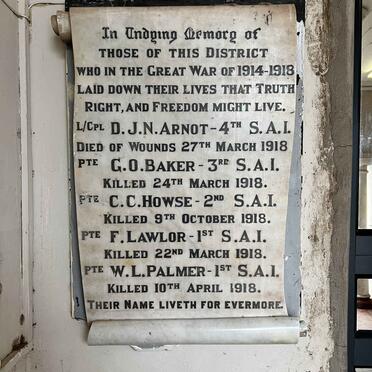 In Undying Memory of
THOSE OF THIS DISTRICT
WHO IN THE GREAT WAR OF 1914-1918
LAID DOWN THEIR LIVES THAT TRUTH
RIGHT, AND FREEDOM MIGHT LIVE.
L/CPL D.J.N. ARNOT - 4TH S.A.I.
DIED OF WOUNDS 27TH MARCH 1918
PTE G.O. BAKER - 3RD S.A.I.
KILLED 24TH MARCH 1918.
PTE C.C. HOWSE - 2ND S.A.I.
KILLED 9TH OCTOBER 1918.
PTE F. LAWLOR - 1ST S.A.I.
KILLED 22ND MARCH 1918.
PTE W.L. PALMER - 1ST S.A.I.
KILLED 10TH APRIL 1918.
THEIR NAME LIVETH FOR EVERMORE